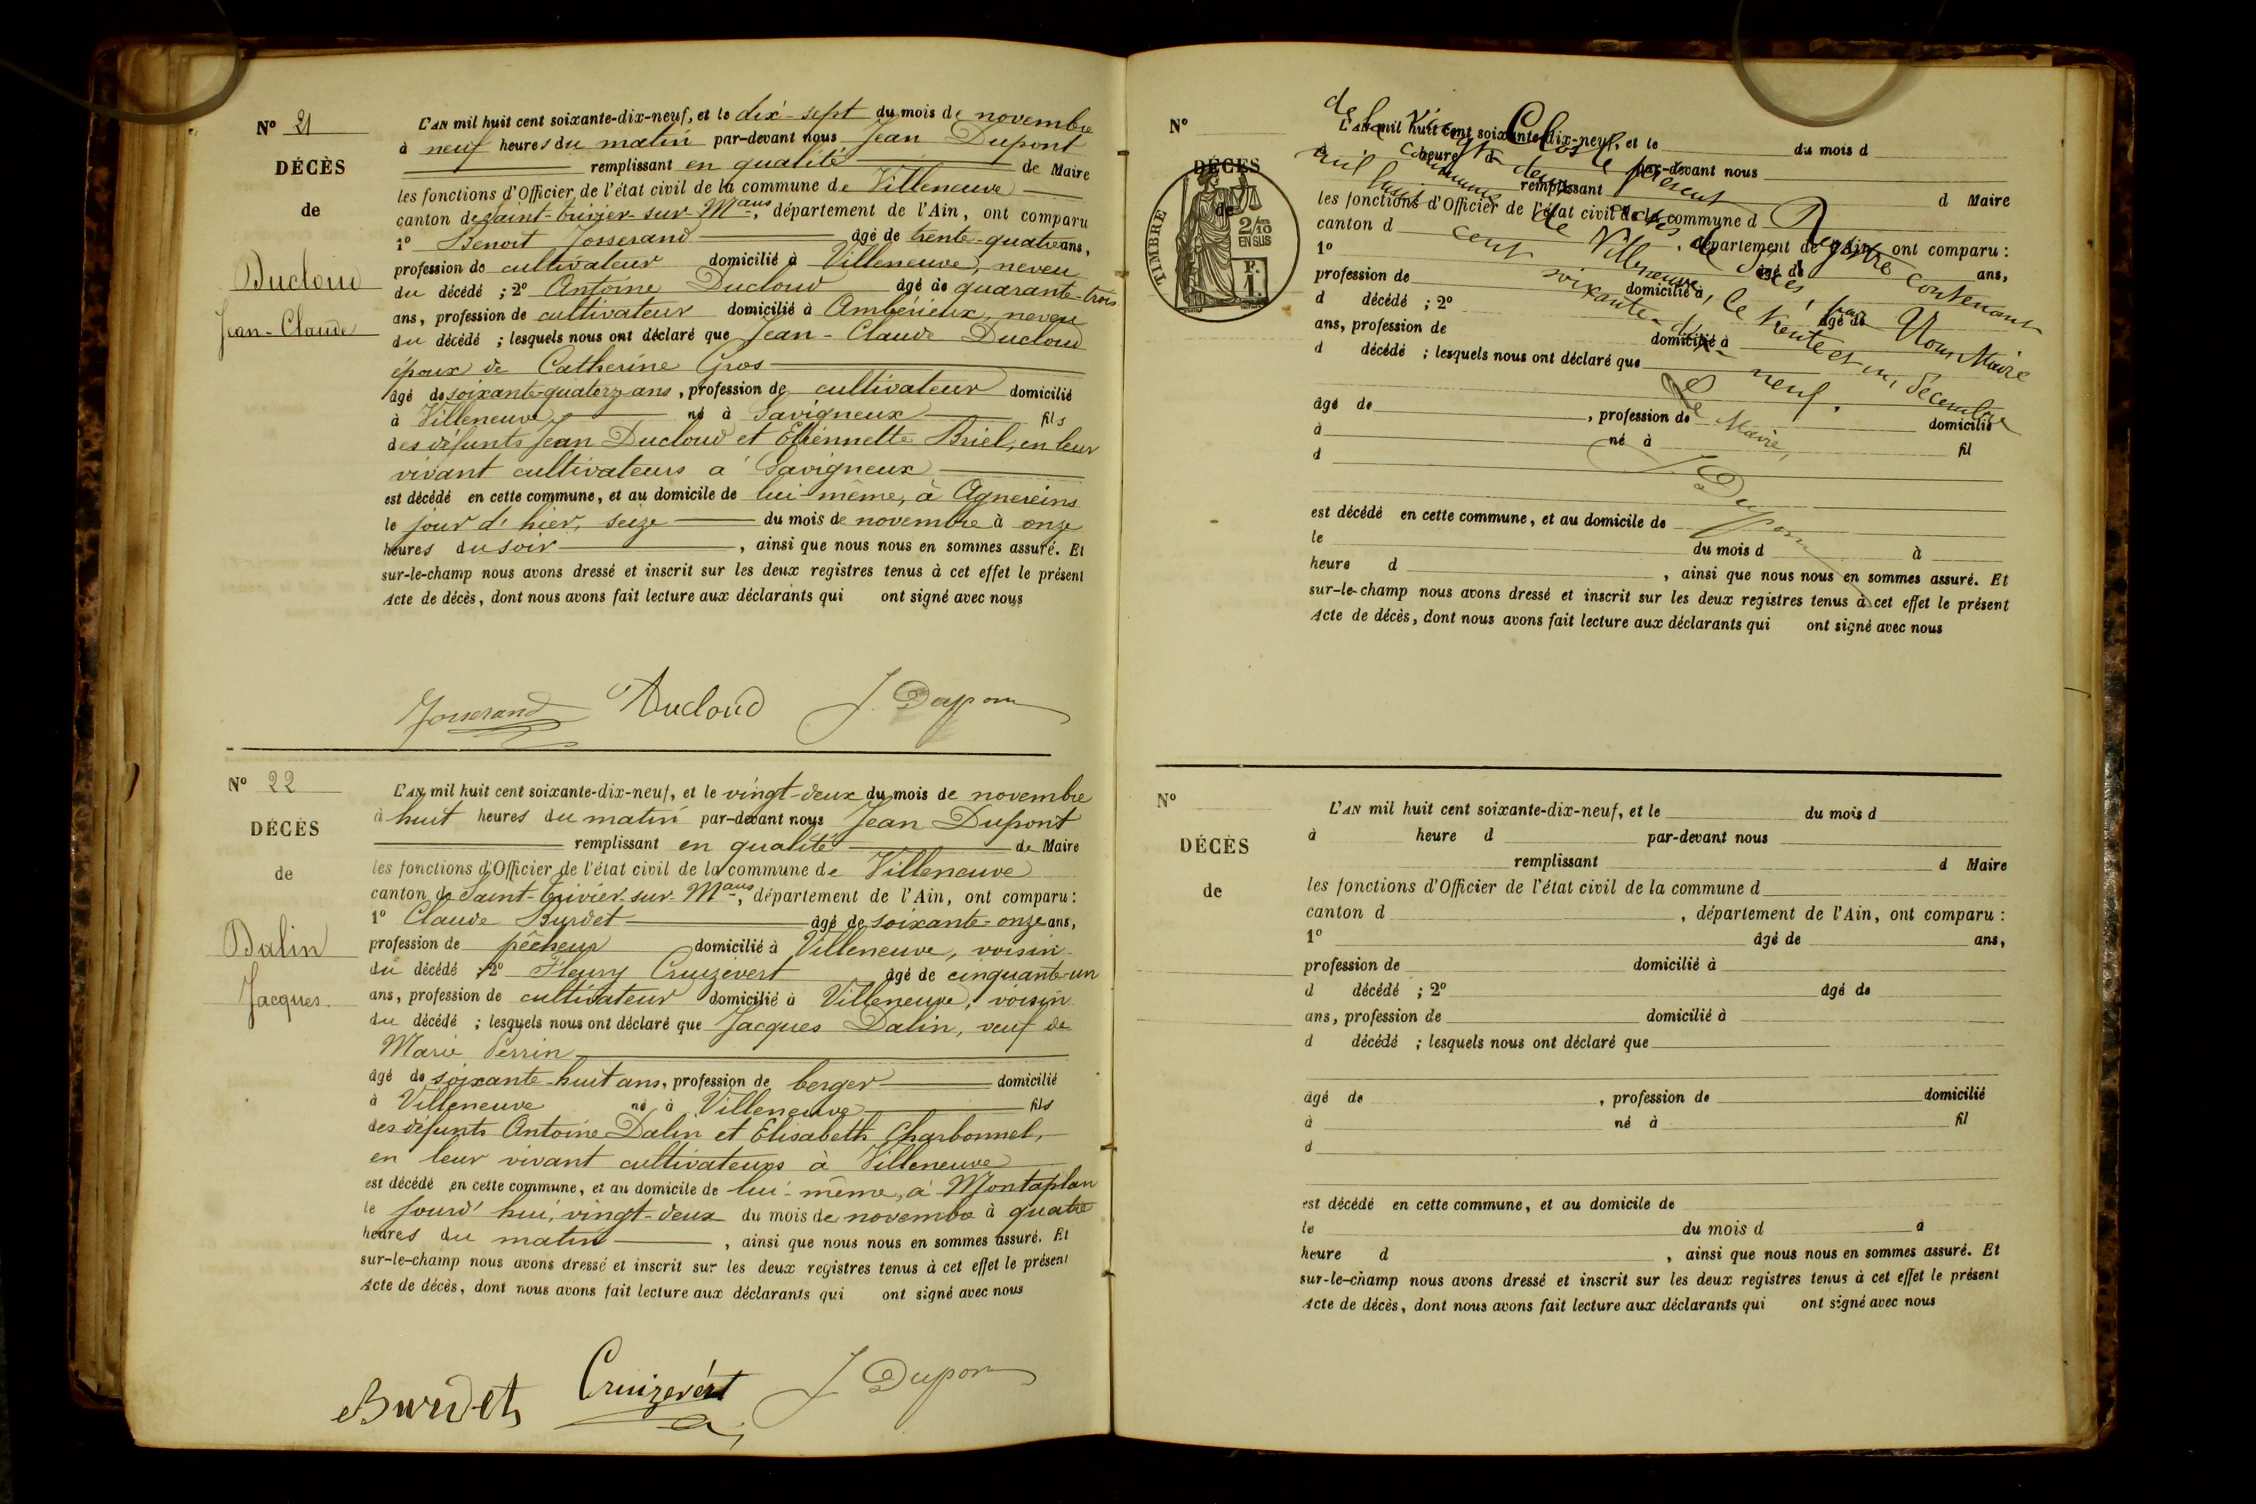 Nº 21
DÉCÈS
de
Ducloud
Jean-Claude
L'AN mil huit cent soixante-dix-neuf, et le dix-sept du mois de novembre
à neuf heures du matin par-devant nous Jean Dupont
remplissant en qualité de Maire
les fonctions d'Officier de l'état civil de la commune de Villeneuve
canton de Saint-trivier-sur-Mans, département de l'Ain, ont comparu
1º Benoit Josserand âgé de trente-quatre ans,
profession de cultivateur domicilié à Villeneuve, neveu
du décédé ; 2º Antoine Ducloud âgé de quarante-trois
ans, profession de cultivateur domicilié à Ambérieux, neveu
du décédé ; lesquels nous ont déclaré que Jean-Claude Ducloud
époux de Catherine Gros
âgé de soixante-quatorz ans, profession de cultivateur domicilié
à Villeneuve né à Savigneux fils
des défunts Jean Ducloud et Etiennette Briel, en leur
vivant cultivateurs à Savigneux
est décédé en cette commune, et au domicile de lui-même, à Agnereins
le jour d'hier, seize du mois de novembre à onze
heures du soir, ainsi que nous nous en sommes assuré. Et
sur-le-champ nous avons dressé et inscrit sur les deux registres tenus à cet effet le présent
Acte de décès, dont nous avons fait lecture aux déclarants qui ont signé avec nous
Josserand Ducloud J. Dupont
Nº 22
DÉCÈS
de
Dalin
Jacques.
L'AN mil huit cent soixante-dix-neuf, et le vingt-deux du mois de novembre
à huit heures du matin par-devant nous Jean Dupont
remplissant en qualité de Maire
les fonctions d'Officier de l'état civil de la commune de Villeneuve
canton de Saint-trivier-sur-Mans, département de l'Ain, ont comparu :
1º Claude Burdet âgé de soixante-onze ans,
profession de pêcheur domicilié à Villeneuve, voisin
du décédé ; 2º Fleury Cruizevert âgé de cinquante-un
ans, profession de cultivateur domicilié à Villeneuve, voisin
du décédé ; lesquels nous ont déclaré que Jacques Dalin, veuf de
Marie Perrin
âgé de soixante-huit ans, profession de berger domicilié
à Villeneuve né à Villeneuve fils
des défunts Antoine Dalin et Elisabeth Charbonnel,
en leur vivant cultivateurs à Villeneuve
est décédé en cette commune, et au domicile de lui-même, à Montaplan
le jourd'hui, vingt-deux du mois de novembre à quatre
heures du matin, ainsi que nous nous en sommes assuré. Et
sur-le-champ nous avons dressé et inscrit sur les deux registres tenus à cet effet le présent
Acte de décès, dont nous avons fait lecture aux déclarants qui ont signé avec nous
Burdet Cruizevert J. Dupont
Nº
DÉCÈS
de
TIMBRE
2/10
EN SUS
Clos le présent Registre contenant
vingt-deux actes de décès, par Nous Maire
de la commune de Villeneuve, le trente et un décembre
mil huit cent soixante-dix-neuf.
Le Maire,
J. Dupont
L'AN mil huit cent soixante-dix-neuf, et le du mois d
à heure d par-devant nous
remplissant d Maire
les fonctions d'Officier de l'état civil de la commune d
canton d , département de l'Ain, ont comparu :
1º âgé de ans,
profession de domicilié à
d décédé ; 2º âgé de
ans, profession de domicilié à
d décédé ; lesquels nous ont déclaré que
âgé de , profession de domicilié
à né à fil
d
est décédé en cette commune, et au domicile de
le du mois d à
heure d , ainsi que nous nous en sommes assuré. Et
sur-le-champ nous avons dressé et inscrit sur les deux registres tenus à cet effet le présent
Acte de décès, dont nous avons fait lecture aux déclarants qui ont signé avec nous
Nº
DÉCÈS
de
L'AN mil huit cent soixante-dix-neuf, et le du mois d
à heure d par-devant nous
remplissant d Maire
les fonctions d'Officier de l'état civil de la commune d
canton d , département de l'Ain, ont comparu :
1º âgé de ans,
profession de domicilié à
d décédé ; 2º âgé de
ans, profession de domicilié à
d décédé ; lesquels nous ont déclaré que
âgé de , profession de domicilié
à né à fil
d
est décédé en cette commune, et au domicile de
le du mois d à
heure d , ainsi que nous nous en sommes assuré. Et
sur-le-champ nous avons dressé et inscrit sur les deux registres tenus à cet effet le présent
Acte de décès, dont nous avons fait lecture aux déclarants qui ont signé avec nous